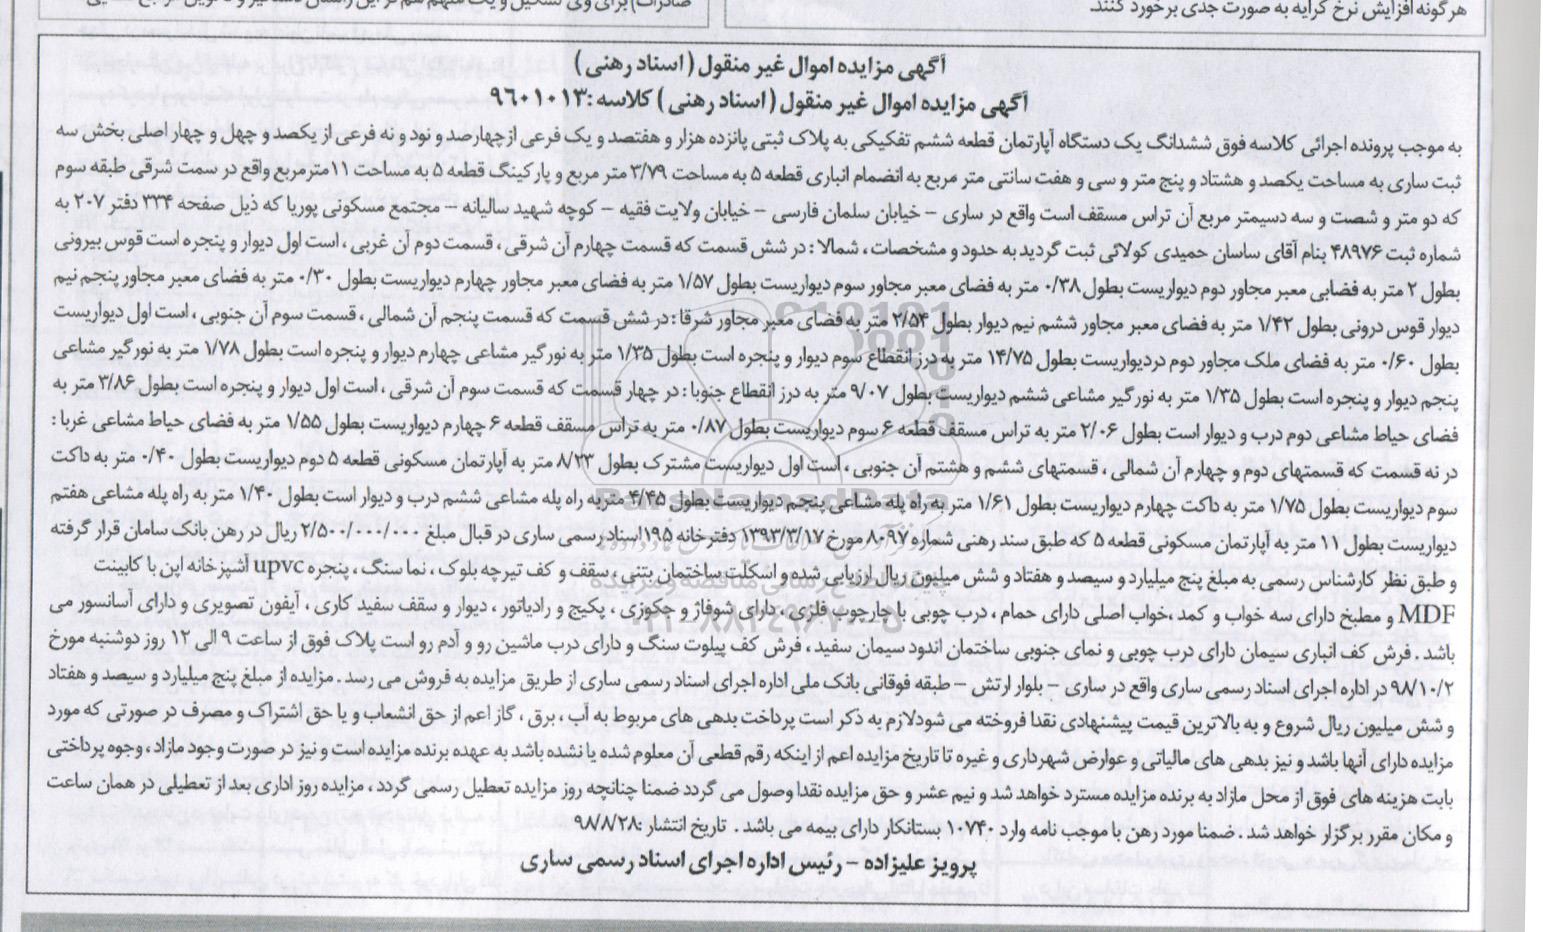 هرگونه افزایش نرخ کرایه به صورت جدی برخورد کنند.
آگهی مزایده اموال غیر منقول ( اسناد رهنی )
آگهی مزایده اموال غیر منقول ( اسناد رهنی ) کلاسه :۹۶۰۱۰۱۳
به موجب پرونده اجرائی کلاسه فوق ششدانگ یک دستگاه آپارتمان قطعه ششم تفکیکی به پلاک ثبتی پانزده هزار و هفتصد و یک فرعی ازچهارصد و نود و نه فرعی از یکصد و چهل و چهار اصلی بخش سه
ثبت ساری به مساحت یکصد و هشتاد و پنج متر و سی و هفت سانتی متر مربع به انضمام انباری قطعه ۵ به مساحت ۳/۷۹ متر مربع و پارکینگ قطعه ۵ به مساحت ۱۱مترمربع واقع در سمت شرقی طبقه سوم
که دو متر و شصت و سه دسیمتر مربع آن تراس مسقف است واقع در ساری – خیابان سلمان فارسی – خیابان ولایت فقیه – کوچه شهید سالیانه – مجتمع مسکونی پوریا که ذیل صفحه ۳۳۴ دفتر ۲۰۷ به
شماره ثبت ۴۸۹۷۶ بنام آقای ساسان حمیدی کولائی ثبت گردید به حدود و مشخصات ، شمالا : در شش قسمت که قسمت چهارم آن شرقی ، قسمت دوم آن غربی ، است اول دیوار و پنجره است قوس بیرونی
بطول ۲ متر به فضایی معبر مجاور دوم دیواریست بطول ۰/۳۸ متر به فضای معبر مجاور سوم دیواریست بطول ۱/۵۷ متر به فضای معبر مجاور چهارم دیواریست بطول ۰/۳۰ متر به فضای معبر مجاور پنجم نیم
دیوار قوس درونی بطول ۱/۴۲ متر به فضای معبر مجاور ششم نیم دیوار بطول ۲/۵۴ متر به فضای معبر مجاور شرقا : در شش قسمت که قسمت پنجم آن شمالی ، قسمت سوم آن جنوبی ، است اول دیواریست
بطول ۰/۶۰ متر به فضای ملک مجاور دوم دردیواریست بطول ۱۴/۷۵ متر به درز انقطاع سوم دیوار و پنجره است بطول ۱/۳۵ متر به نورگیر مشاعی چهارم دیوار و پنجره است بطول ۱/۷۸ متر به نورگیر مشاعی
پنجم دیوار و پنجره است بطول ۱/۳۵ متر به نورگیر مشاعی ششم دیواریست بطول ۹/۰۷ متر به درز انقطاع جنوبا : در چهار قسمت که قسمت سوم آن شرقی ، است اول دیوار و پنجره است بطول ۳/۸۶ متر به
فضای حیاط مشاعی دوم درب و دیوار است بطول ۲/۰۶ متر به تراس مسقف قطعه ۶ سوم دیواریست بطول ۰/۸۷ متر به تراس مسقف قطعه ۶ چهارم دیواریست بطول ۱/۵۵ متر به فضای حیاط مشاعی غربا :
در نه قسمت که قسمتهای دوم و چهارم آن شمالی ، قسمتهای ششم و هشتم آن جنوبی ، است اول دیواریست مشترک بطول ۸/۲۳ متر به آپارتمان مسکونی قطعه ۵ دوم دیواریست بطول ۰/۴۰ متر به داکت
سوم دیواریست بطول ۱/۷۵ متر به داکت چهارم دیواریست بطول ۱/۶۱ متر به راه پله مشاعی پنجم دیواریست بطول ۴/۴۵ متربه راه پله مشاعی ششم درب و دیوار است بطول ۱/۴۰ متر به راه پله مشاعی هفتم
دیواریست بطول ۱۱ متر به آپارتمان مسکونی قطعه ۵ که طبق سند رهنی شماره ۸۰۹۷ مورخ ۱۳۹۳/۳/۱۷ دفترخانه ۱۹۵اسناد رسمی ساری در قبال مبلغ ۲/۵۰۰/۰۰۰/۰۰۰ ریال در رهن بانک سامان قرار گرفته
و طبق نظر کارشناس رسمی به مبلغ پنج میلیارد و سیصد و هفتاد و شش میلیون ریال ارزیابی شده و اسکلت ساختمان بتنی ، سقف و کف تیرچه بلوک ، نما سنگ ، پنجره upvc آشپزخانه اپن با کابینت
MDF و مطبخ دارای سه خواب و کمد ،خواب اصلی دارای حمام ، درب چوبی با چارچوب فلزی ، دارای شوفاژ و جکوزی ، پکیج و رادیاتور ، دیوار و سقف سفید کاری ، آیفون تصویری و دارای آسانسور می
باشد . فرش کف انباری سیمان دارای درب چوبی و نمای جنوبی ساختمان اندود سیمان سفید ، فرش کف پیلوت سنگ و دارای درب ماشین رو و آدم رو است پلاک فوق از ساعت ۹ الی ۱۲ روز دوشنبه مورخ
۹۸/۱۰/۲ در اداره اجرای اسناد رسمی ساری واقع در ساری – بلوار ارتش – طبقه فوقانی بانک ملی اداره اجرای اسناد رسمی ساری از طریق مزایده به فروش می رسد . مزایده از مبلغ پنج میلیارد و سیصد و هفتاد
و شش میلیون ریال شروع و به بالاترین قیمت پیشنهادی نقدا فروخته می شودلازم به ذکر است پرداخت بدهی های مربوط به آب ، برق ، گاز اعم از حق انشعاب و یا حق اشتراک و مصرف در صورتی که مورد
مزایده دارای آنها باشد و نیز بدهی های مالیاتی و عوارض شهرداری و غیره تا تاریخ مزایده اعم از اینکه رقم قطعی آن معلوم شده یا نشده باشد به عهده برنده مزایده است و نیز در صورت وجود مازاد ، وجوه پرداختی
بابت هزینه های فوق از محل مازاد به برنده مزایده مسترد خواهد شد و نیم عشر و حق مزایده نقدا وصول می گردد ضمنا چنانچه روز مزایده تعطیل رسمی گردد ، مزایده روز اداری بعد از تعطیلی در همان ساعت
و مکان مقرر برگزار خواهد شد . ضمنا مورد رهن با موجب نامه وارد ۱۰۷۴۰ بستانکار دارای بیمه می باشد . تاریخ انتشار :۹۸/۸/۲۸
پرویز علیزاده – رئیس اداره اجرای اسناد رسمی ساری
ParsNamadData